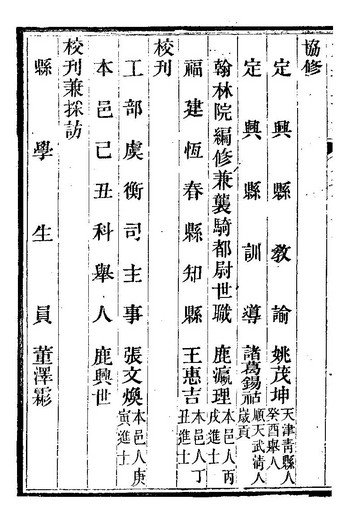 協修
定興縣敎諭 姚茂坤 天津青縣人癸酉舉人
定興縣訓導 諸葛錫祜 順天武清人歲貢
翰林院編修兼襲騎都尉世職 鹿瀛理 本邑人丙戌進士
福建恆春縣知縣 王惠吉 本邑人丁丑進士
校刊
工部虞衡司主事 張文煥 本邑人庚寅進士
本邑己丑科舉人 鹿興世
校刊兼採訪
縣學生員 董澤霦